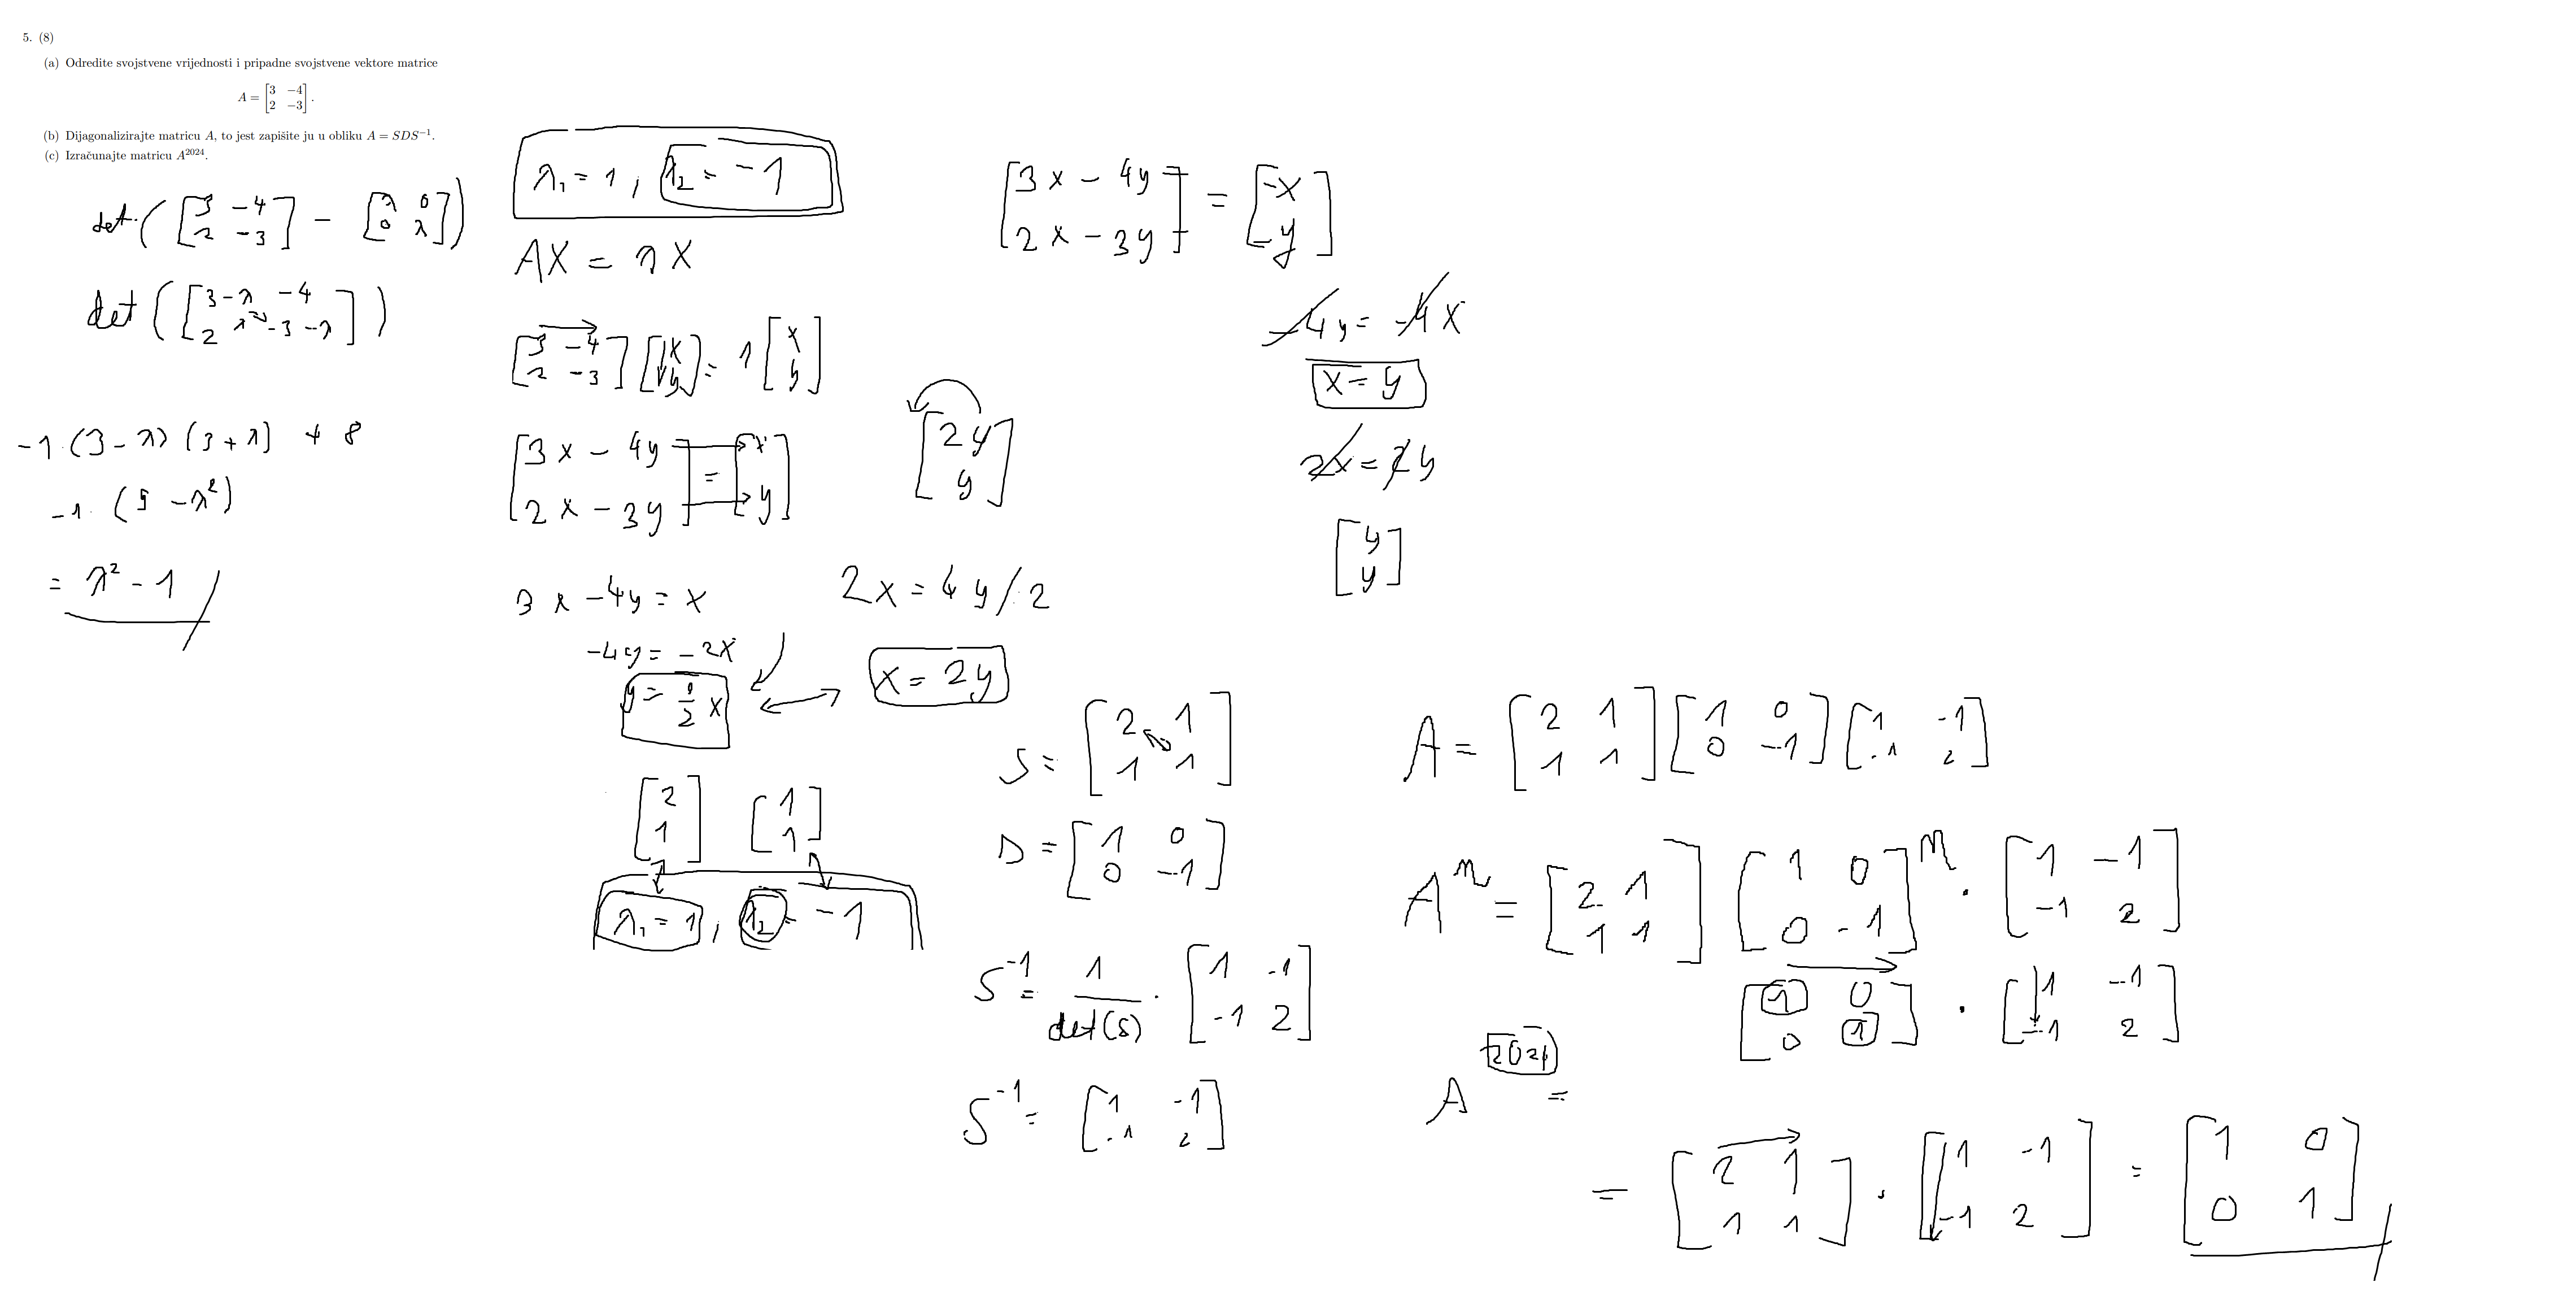 5. (8)
(a) Odredite svojstvene vrijednosti i pripadne svojstvene vektore matrice
A = [3 −4; 2 −3].
(b) Dijagonalizirajte matricu A, to jest zapišite ju u obliku A = SDS⁻¹.
(c) Izračunajte matricu A²⁰²⁴.
det ([3 -4; 2 -3] - [λ 0; 0 λ])
det ([3-λ -4; 2 -3-λ])
-1·(3-λ)(3+λ) + 8
-1·(9 -λ²)
= λ² - 1
λ₁ = 1, λ₂ = -1
AX = λX
[3 -4; 2 -3] [x; y] = 1 [x; y]
[3x - 4y; 2x - 3y] = [x; y]
3x - 4y = x
-4y = -2x
y = 1/2 x
[2y; y]
2x = 4y /:2
x = 2y
[2; 1] [1; 1]
λ₁ = 1, λ₂ = -1
[3x - 4y; 2x - 3y] = [-x; -y]
-4y = -4x
x = y
2x = 2y
[y; y]
S = [2 1; 1 1]
D = [1 0; 0 -1]
S⁻¹ = 1/det(S) · [1 -1; -1 2]
S⁻¹ = [1 -1; -1 2]
A = [2 1; 1 1] [1 0; 0 -1] [1 -1; -1 2]
Aⁿ = [2 1; 1 1] [1 0; 0 -1]ⁿ · [1 -1; -1 2]
[1 0; 0 1] · [1 -1; -1 2]
A²⁰²⁴ =
= [2 1; 1 1] · [1 -1; -1 2] = [1 0; 0 1]